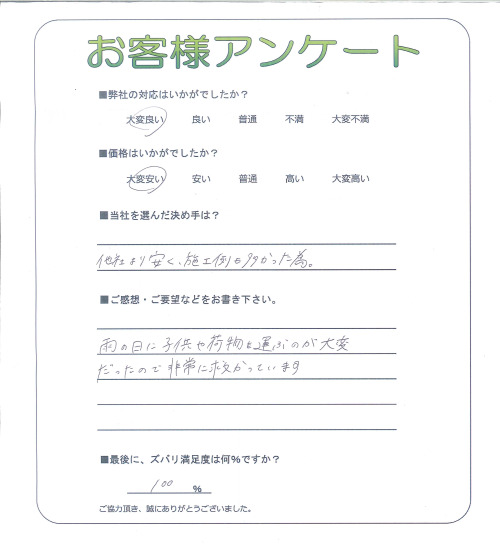 お客様アンケート
■弊社の対応はいかがでしたか？
大変良い 良い 普通 不満 大変不満
■価格はいかがでしたか？
大変安い 安い 普通 高い 大変高い
■当社を選んだ決め手は？
他社より安く、施工例も多かった為。
■ご感想・ご要望などをお書き下さい。
雨の日に子供や荷物を運ぶのが大変
だったので非常に助かっています
■最後に、ズバリ満足度は何%ですか？
100 %
ご協力頂き、誠にありがとうございました。